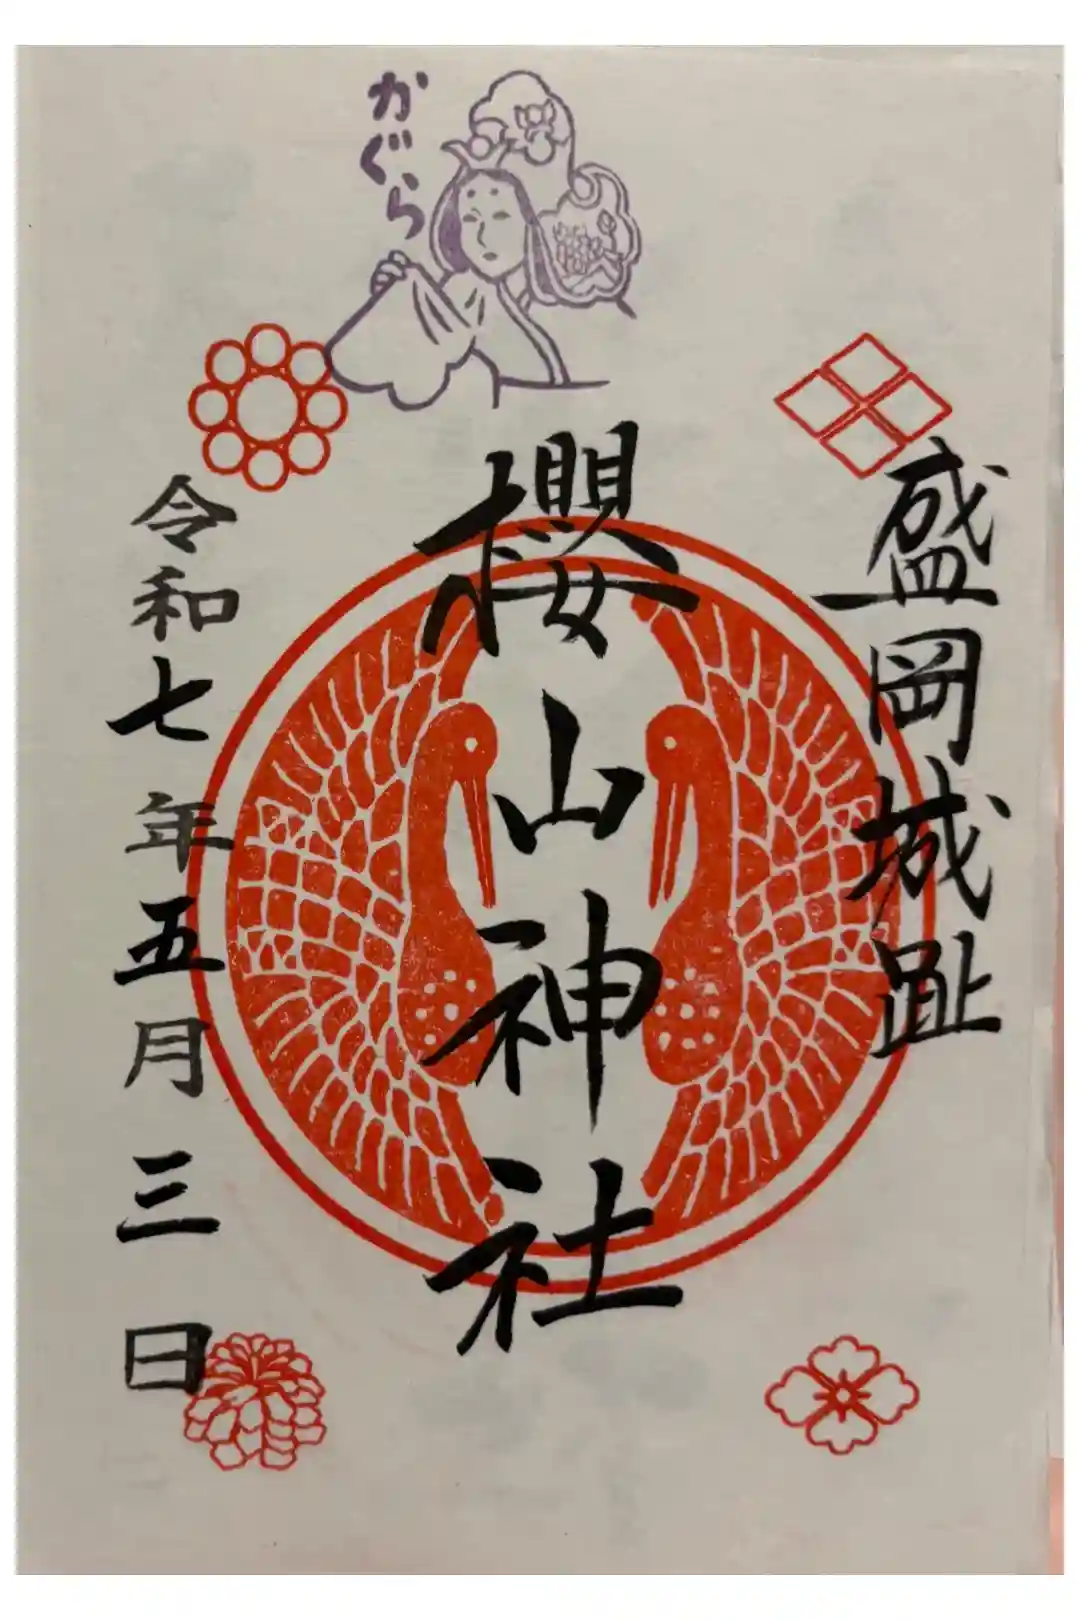 盛岡城趾
櫻山神社
かぐら
令和七年五月三日